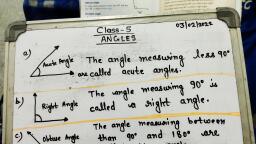 Class-5
03/02/2022
ANGLES
a) Acute Angle The angle measuring less 90°
are called acute angles.
b) Right Angle The angle measuring 90° is
called a right angle.
c) Obtuse Angle The angle measuring between
than 90° and 180° are